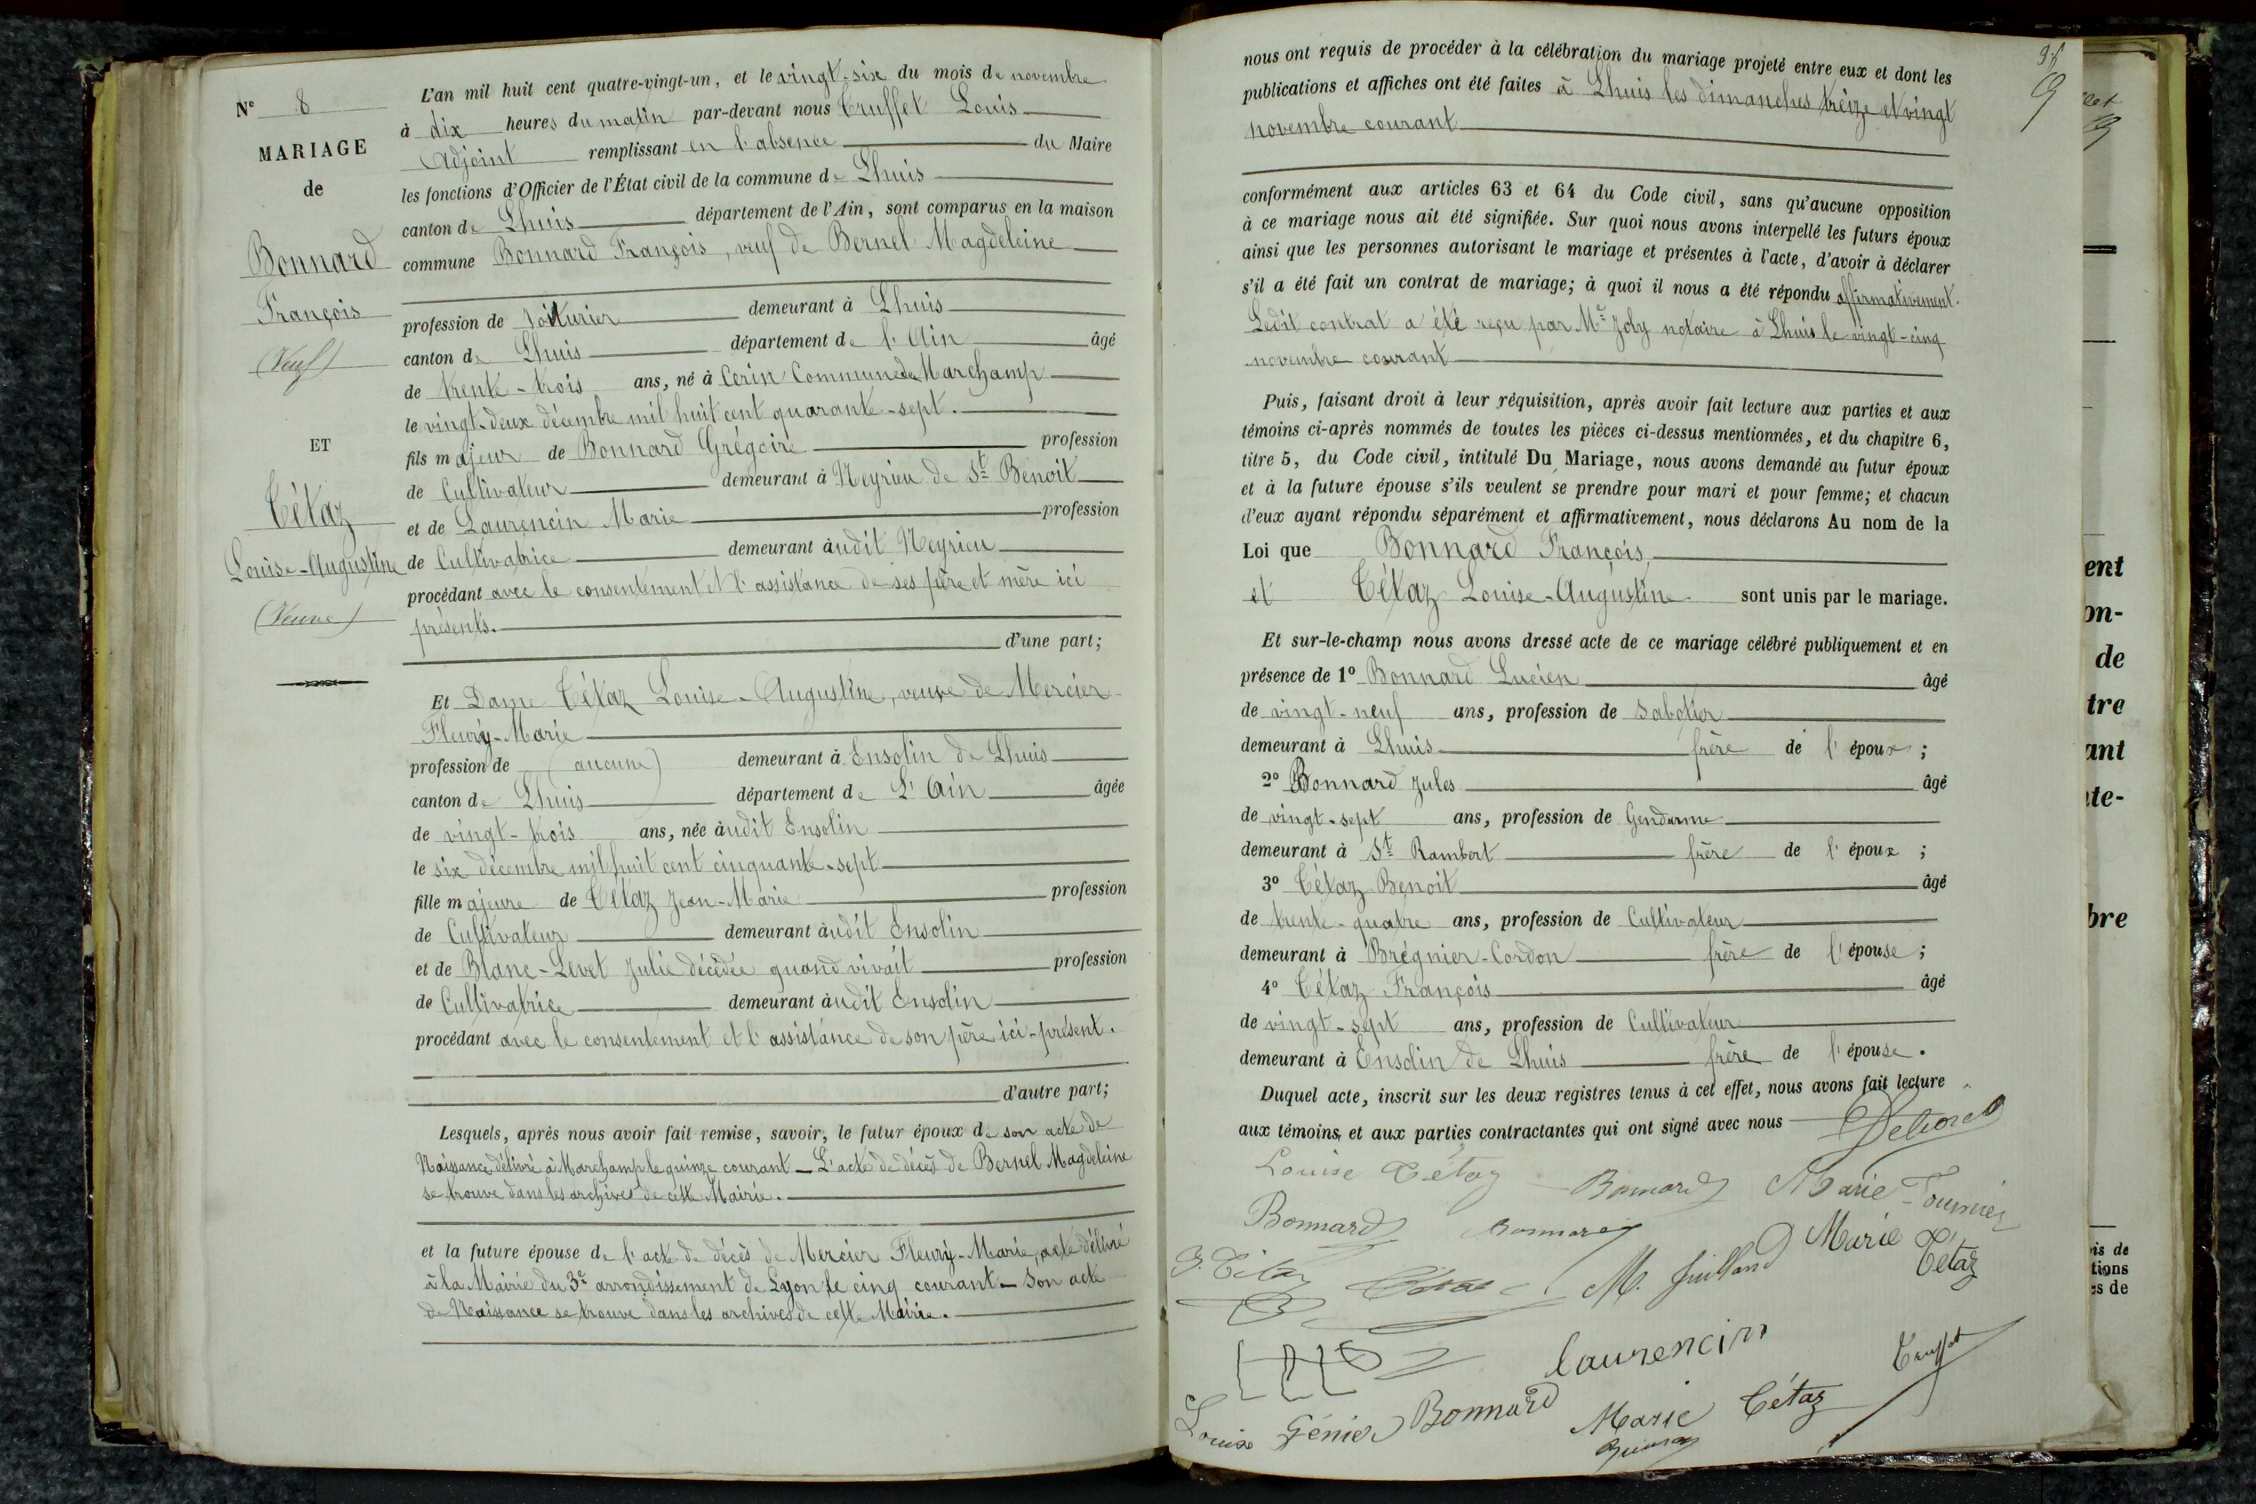 N° 8
MARIAGE
de
Bonnard
François
(Veuf)
ET
Tétaz
Louise-Augustine
(Veuve)
L'an mil huit cent quatre-vingt-un, et le vingt-six du mois de novembre
à dix heures du matin par-devant nous Truffet Louis
Adjoint remplissant en l'absence du Maire
les fonctions d'Officier de l'État civil de la commune de Lhuis
canton de Lhuis département de l'Ain, sont comparus en la maison
commune Bonnard François, veuf de Bernel Magdeleine
profession de voiturier demeurant à Lhuis
canton de Lhuis département de l'Ain âgé
de trente-trois ans, né à Cerin Commune de Marchamp
le vingt-deux décembre mil huit cent quarante-sept.
fils majeur de Bonnard Grégoire profession
de Cultivateur demeurant à Neyrieu de St Benoit
et de Laurencin Marie profession
de Cultivatrice demeurant àudit Neyrieu
procédant avec le consentement et l'assistance de ses père et mère ici
présents.
d'une part;
Et Dame Tétaz Louise-Augustine, veuve de Mercier
Fleury-Marie
profession de (aucune) demeurant à Ensolin de Lhuis
canton de Lhuis département de L'Ain âgée
de vingt-trois ans, née àudit Ensolin
le six décembre mil huit cent cinquante-sept
fille majeure de Tétaz Jean-Marie profession
de Cultivateur demeurant àudit Ensolin
et de Blanc-Levet Julie décédée quand vivait profession
de Cultivatrice demeurant àudit Ensolin
procédant avec le consentement et l'assistance de son père ici-présent.
d'autre part;
Lesquels, après nous avoir fait remise, savoir, le futur époux de son acte de
Naissance délivré à Marchamp le quinze courant _ L'acte de décès de Bernel Magdeleine
se trouve dans les archives de cette Mairie.
et la future épouse de l'acte de décès de Mercier Fleury-Marie, acte délivré
à la Mairie du 3e arrondissement de Lyon le cinq courant _ Son acte
de Naissance se trouve dans les archives de cette Mairie.
nous ont requis de procéder à la célébration du mariage projeté entre eux et dont les
publications et affiches ont été faites à Lhuis les dimanches treize et vingt
novembre courant
conformément aux articles 63 et 64 du Code civil, sans qu'aucune opposition
à ce mariage nous ait été signifiée. Sur quoi nous avons interpellé les futurs époux
ainsi que les personnes autorisant le mariage et présentes à l'acte, d'avoir à déclarer
s'il a été fait un contrat de mariage; à quoi il nous a été répondu affirmativement.
Ledit contrat a été reçu par Me Joly notaire à Lhuis le vingt-cinq
novembre courant
Puis, faisant droit à leur réquisition, après avoir fait lecture aux parties et aux
témoins ci-après nommés de toutes les pièces ci-dessus mentionnées, et du chapitre 6,
titre 5, du Code civil, intitulé Du Mariage, nous avons demandé au futur époux
et à la future épouse s'ils veulent se prendre pour mari et pour femme; et chacun
d'eux ayant répondu séparément et affirmativement, nous déclarons Au nom de la
Loi que Bonnard François,
et Tétaz Louise-Augustine sont unis par le mariage.
Et sur-le-champ nous avons dressé acte de ce mariage célébré publiquement et en
présence de 1° Bonnard Lucien âgé
de vingt-neuf ans, profession de sabotier
demeurant à Lhuis frère de l'époux;
2° Bonnard Jules âgé
de vingt-sept ans, profession de Gendarme
demeurant à St Rambert frère de l'époux;
3° Tétaz Benoit âgé
de trente-quatre ans, profession de Cultivateur
demeurant à Brégnier-Cordon frère de l'épouse;
4° Tétaz François âgé
de vingt-sept ans, profession de Cultivateur
demeurant à Ensolin de Lhuis frère de l'épouse.
Duquel acte, inscrit sur les deux registres tenus à cet effet, nous avons fait lecture
aux témoins et aux parties contractantes qui ont signé avec nous
Louise Tétaz Bonnard Marie Tournier
Bonnard Bonnard
M. Juilland Marie Tétaz
laurencin
Louise Génier Bonnard Marie Tétaz Truffet
ent
on-
de
tre
ant
te-
bre
is de
tions
s de